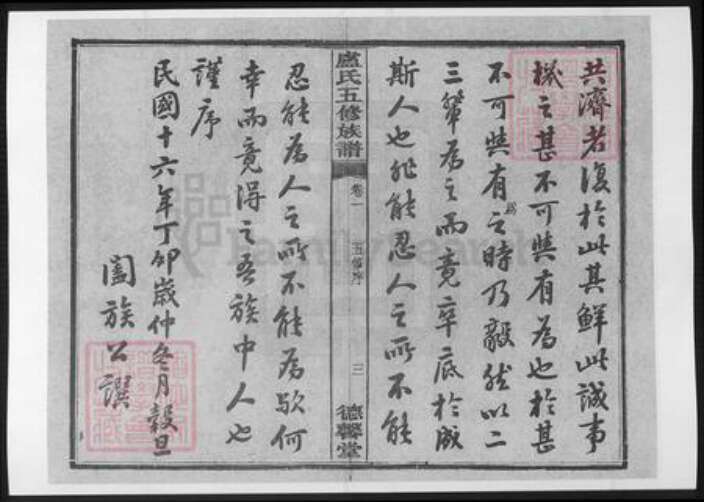 共濟者復於此其鮮此誠事
機之甚不可與有為也於甚
不可與有為之時乃毅然以二
三輩為之而竟卒底於成
斯人也非能忍人之所不能
盧氏五修族譜 卷一 五修序 三 德馨堂
忍能為人之所不能為歟何
幸而竟得之吾族中人也
謹序
民國十六年丁卯歲仲冬月穀旦
闔族公譔
FamilySearch